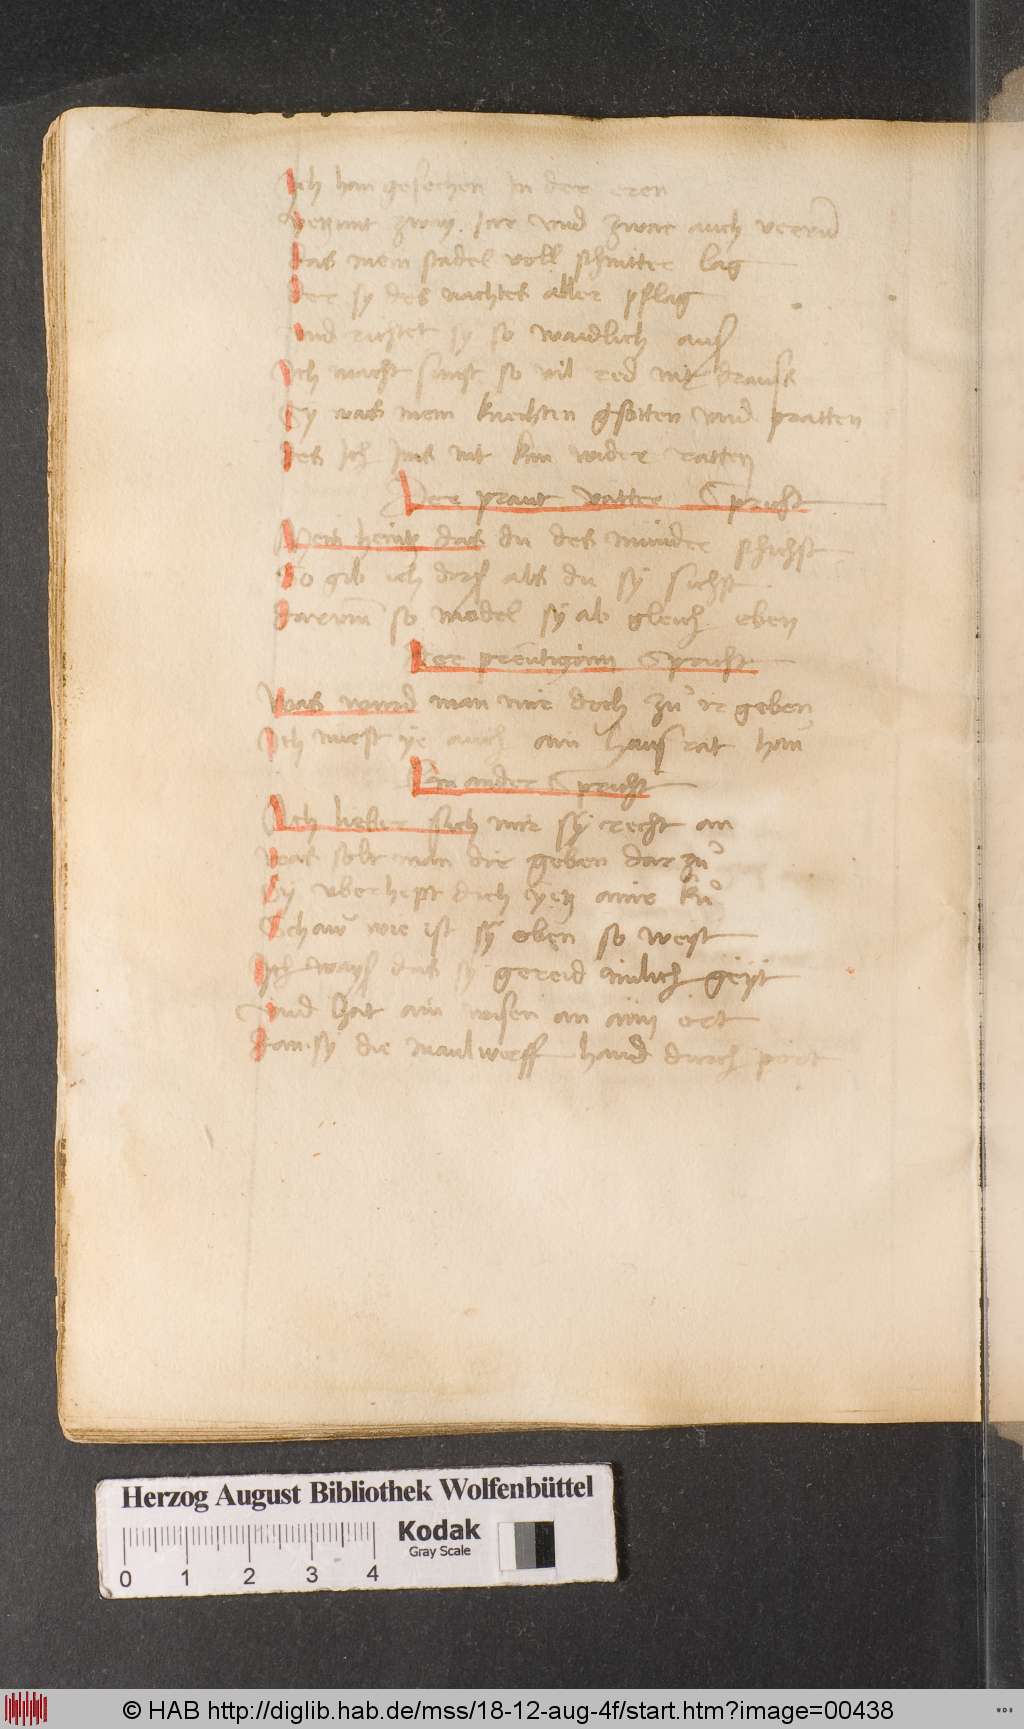 Ich han gesechen in der eren
zway Jar vnd zwar auch
das mein stadel voll schnitter lag
der sy des nachtes aller pflag
vnd richtet sy so waidlich auß
Ich macht sunst so vil red nit drauß
Sy was mein knechten gsotten vnd pratten
des Ich Ims nit kan wider ratten
Der praut vatter Spricht
Mein heintz das du des minder schichst
So gib ich dirß als du sy sichst
darumb so model sy ab gleich eben
Der preutigam Spricht
Was wurd man mir doch zu ir geben
Ich muest ye auch ain hausrat han
Ein ander Spricht
Ach lieber sich mir sy recht an
was solt man dir geben darzů
Sy vberhept dich yetz ainr ků
Schaw wie ist sy oben so weist
Ich wayß das sy gereid
vnd hat ain wisen an aim ort
dan sy die maulwerff hand durch port
Herzog August Bibliothek Wolfenbüttel
Kodak
Gray Scale
0 1 2 3 4
© HAB http://diglib.hab.de/mss/18-12-aug-4f/start.htm?image=00438